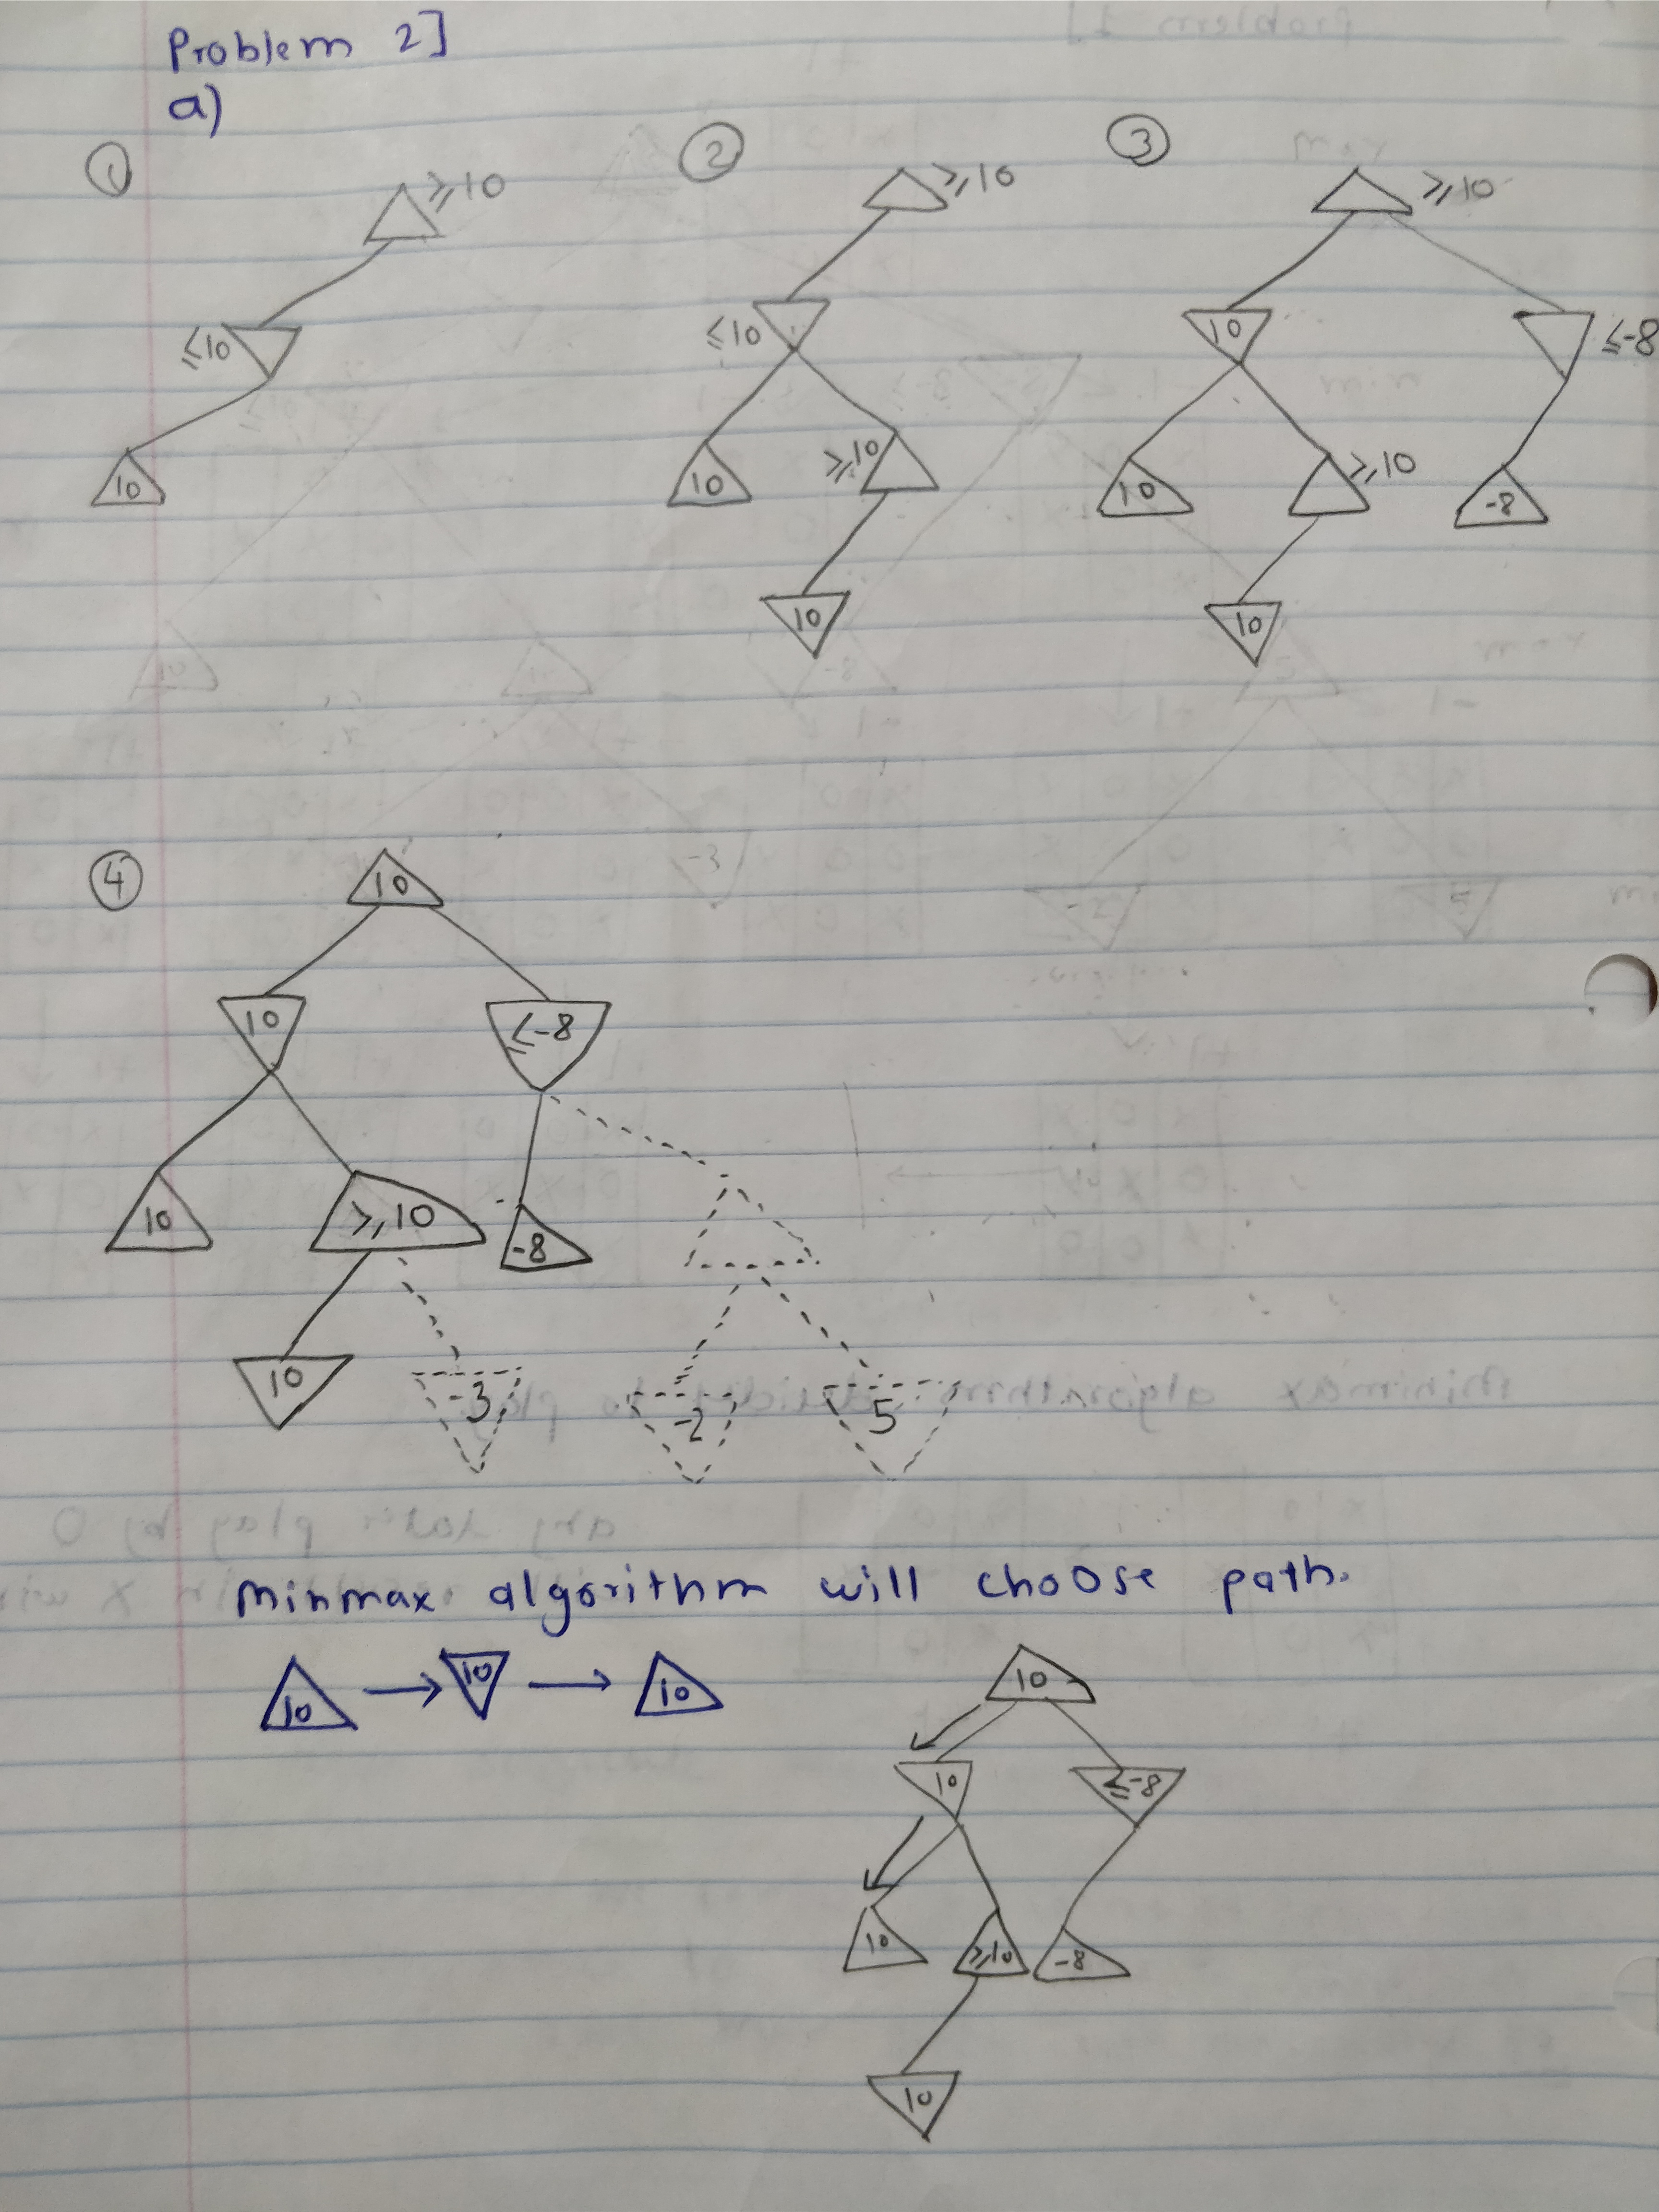 Problem 2]
a)
① ② ③
≥10 ≥10 ≥10
≤10 ≤10 10 ≤-8
10 10 ≥10 10 ≥10 -8
10 10
④
10
10 ≤-8
10 ≥10 -8
10 -3 -2 5
minmax algorithm will choose path.
10 → 10 → 10
10
10 ≤-8
10 ≥10 -8
10